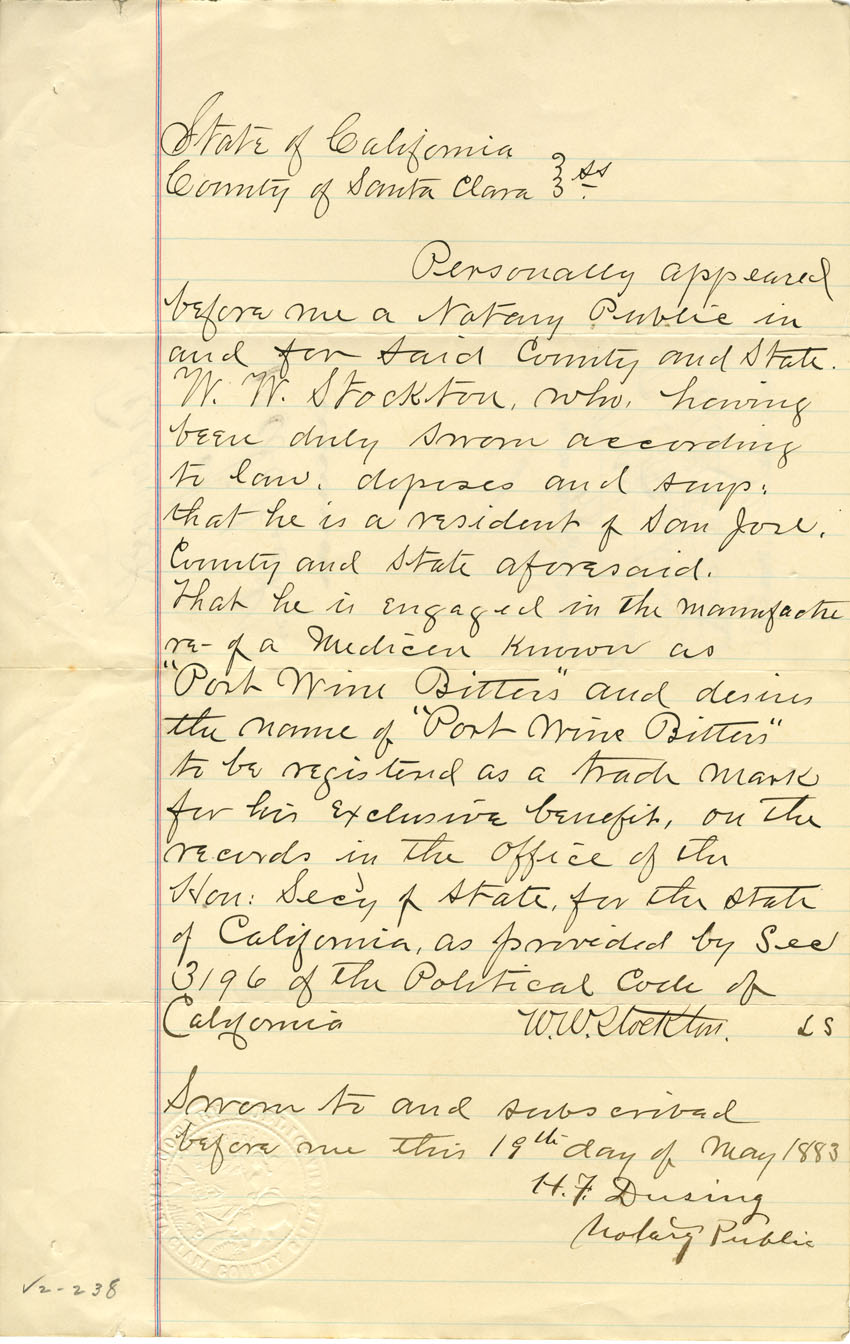 State of California
County of Santa Clara } ss
Personally appeared
before me a Notary Public in
and for said County and State.
W. W. Stockton, who, having
been duly sworn according
to law, deposes and says:
that he is a resident of San Jose,
County and State aforesaid.
That he is engaged in the manufactu
re- of a Medicen Known as
"Port Wine Bitters" and desires
the name of "Port Wine Bitters"
to be registered as a trade mark
for his exclusive benefit, on the
records in the office of the
Hon: Sec'y of State, for the State
of California, as provided by Sec
3196 of the Political Code of
California W.W. Stockton. LS
Sworn to and subscribed
before me this 19th day of May 1883
H. F. Dusing
Notary Public
√2-238
CLARA COUNTY